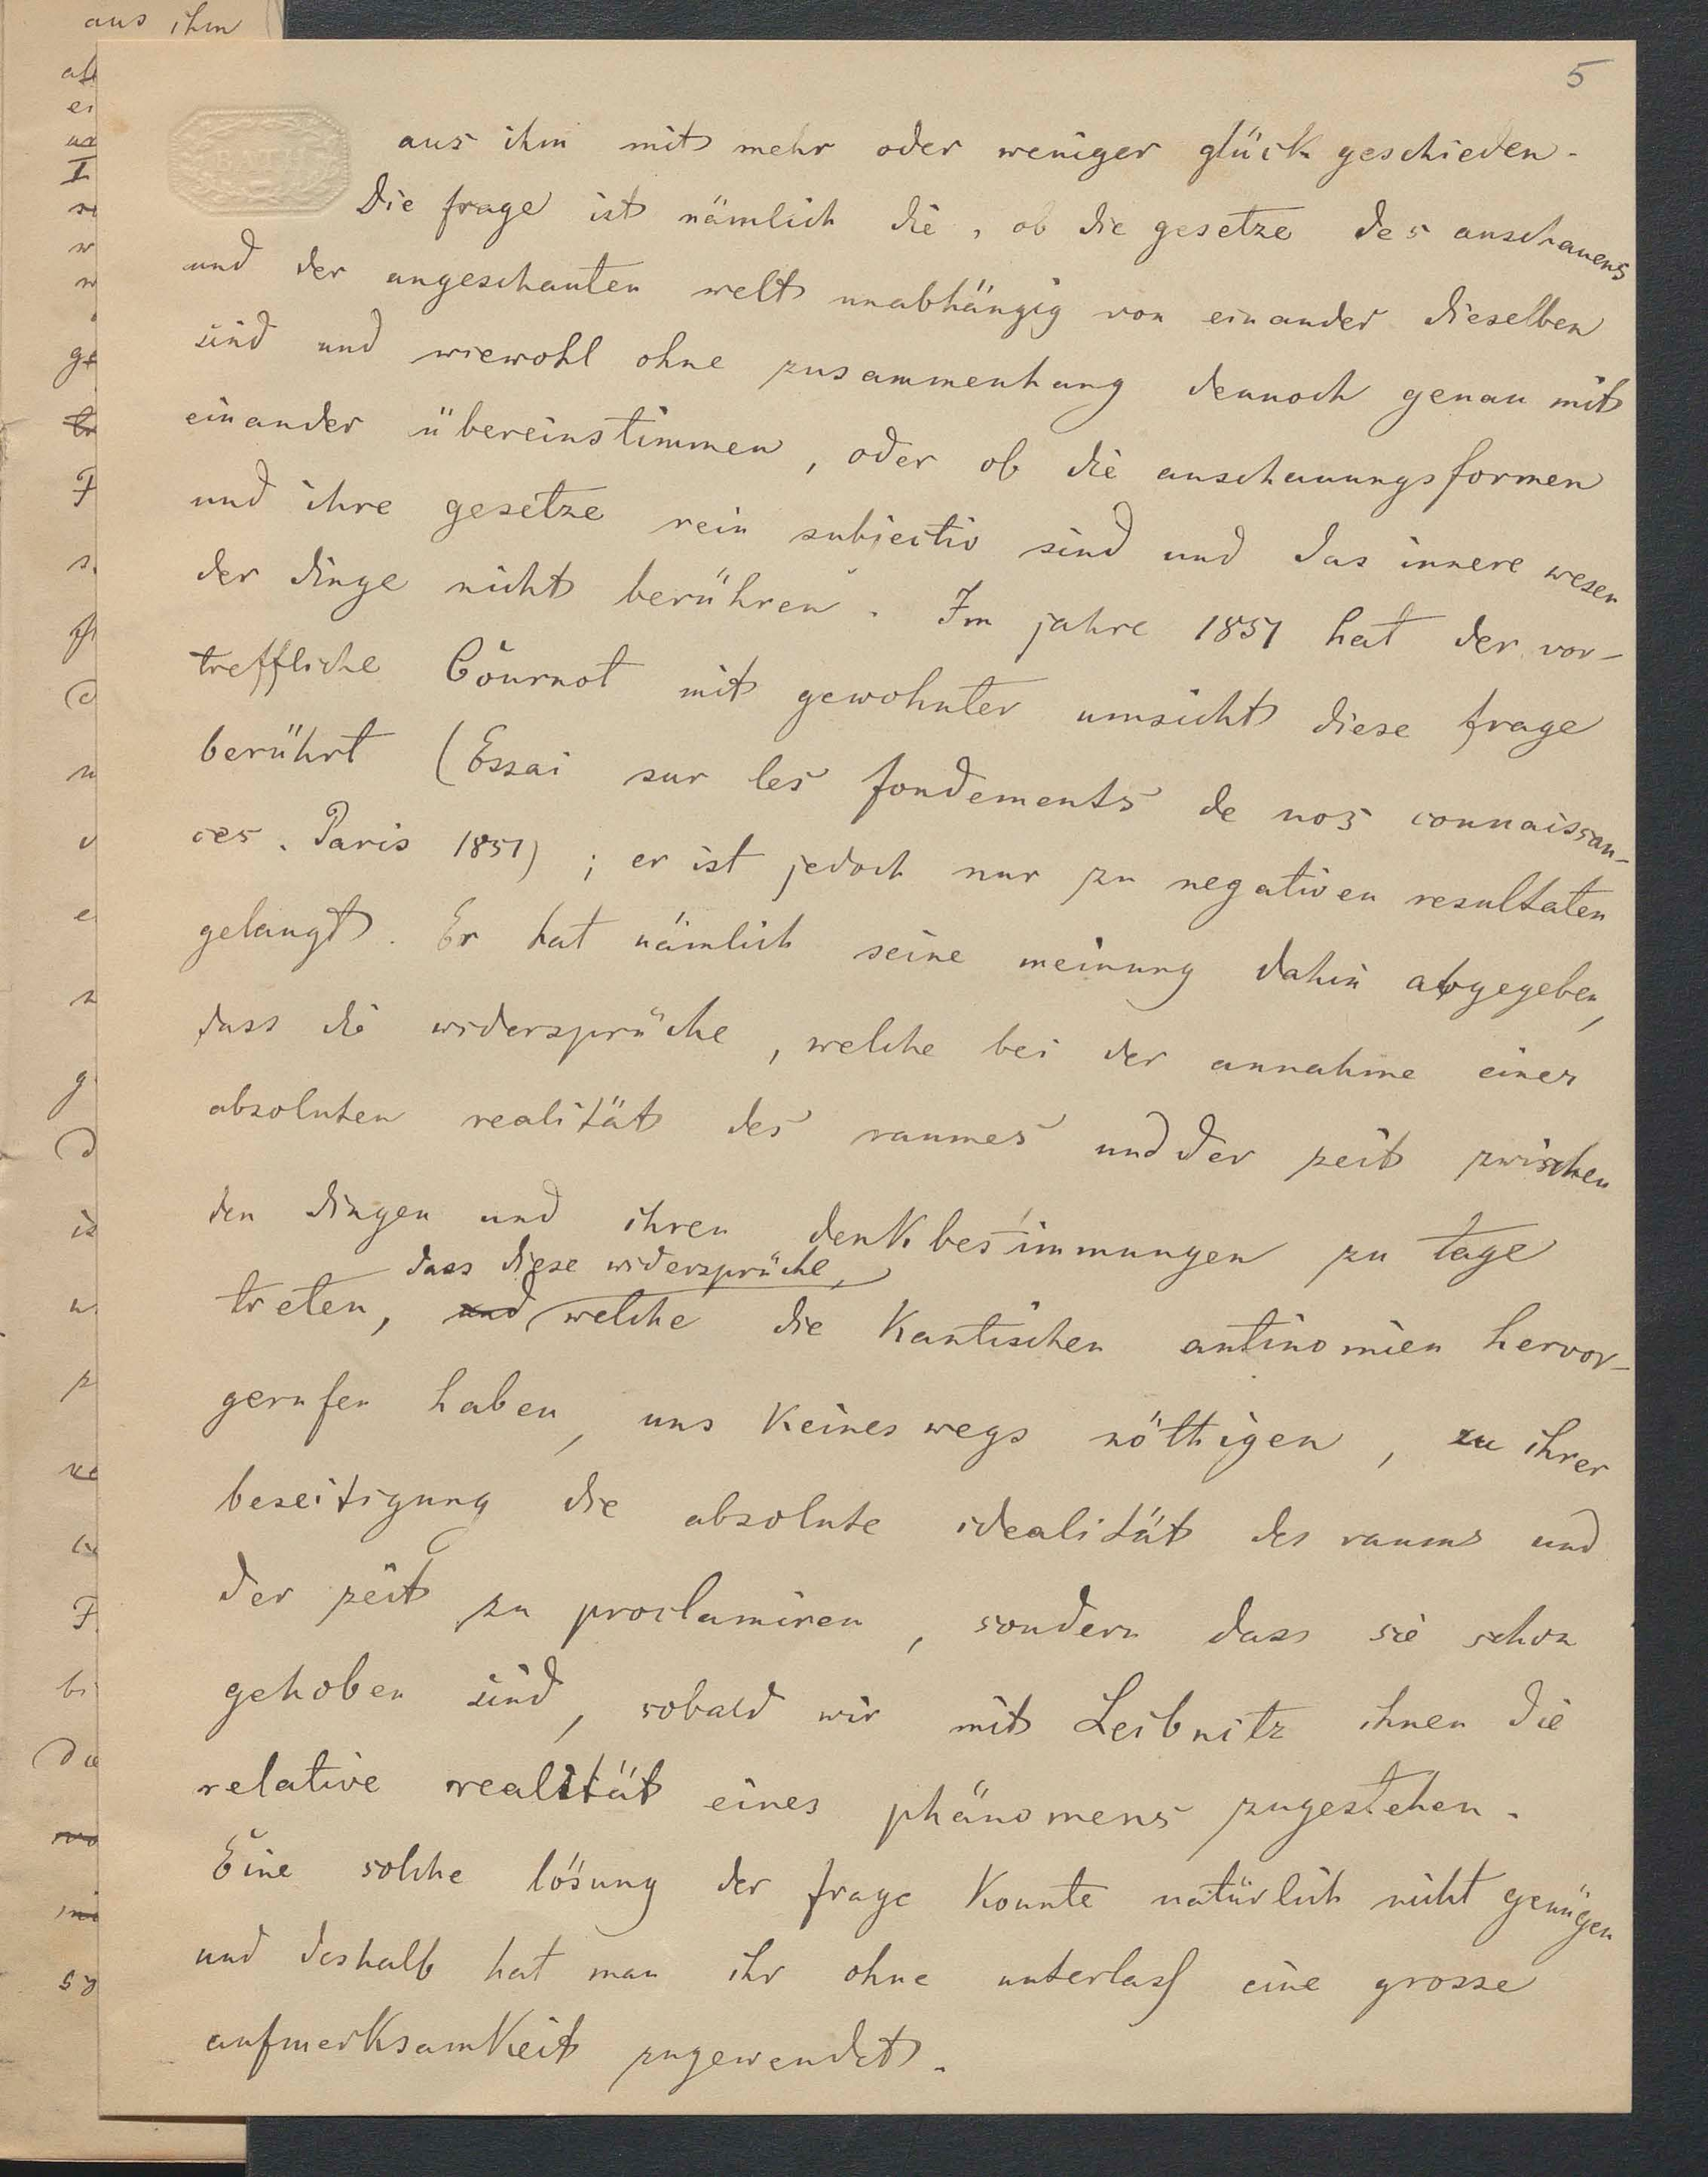 aus ihm
5
aus ihm mit mehr oder weniger glück geschieden.
Die frage ist nämlich die, ob die gesetze des anschauens
und der angeschauten welt unabhängig von einander dieselben
sind und wiewohl ohne zusammenhang dennoch genau mit
einander übereinstimmen, oder ob die anschauungsformen
und ihre gesetze rein subjectiv sind und das innere wesen
der dinge nicht berühren. Im jahre 1851 hat der vor-
treffliche Cournot mit gewohnter umsicht diese frage
berührt (Essai sur les fondements de nos connaissan-
ces. Paris 1851); er ist jedoch nur zu negativen resultaten
gelangt. Er hat nämlich seine meinung dahin abgegeben,
dass die widersprüche, welche bei der annahme einer
absoluten realität des raumes und der zeit zwischen
den dingen und ihren denkbestimmungen zu tage
dass diese widersprüche,
treten, und welche die Kantischen antinomien hervor-
gerufen haben, uns keineswegs nöthigen, zu ihrer
beseitigung die absolute idealität des raums und
der zeit zu proclamiren, sondern dass sie schon
gehoben sind, sobald wir mit Leibnitz ihnen die
relative realität eines phänomens zugestehen.
Eine solche lösung der frage konnte natürlich nicht genügen
und deshalb hat man ihr ohne unterlass eine grosse
aufmerksamkeit zugewendet.